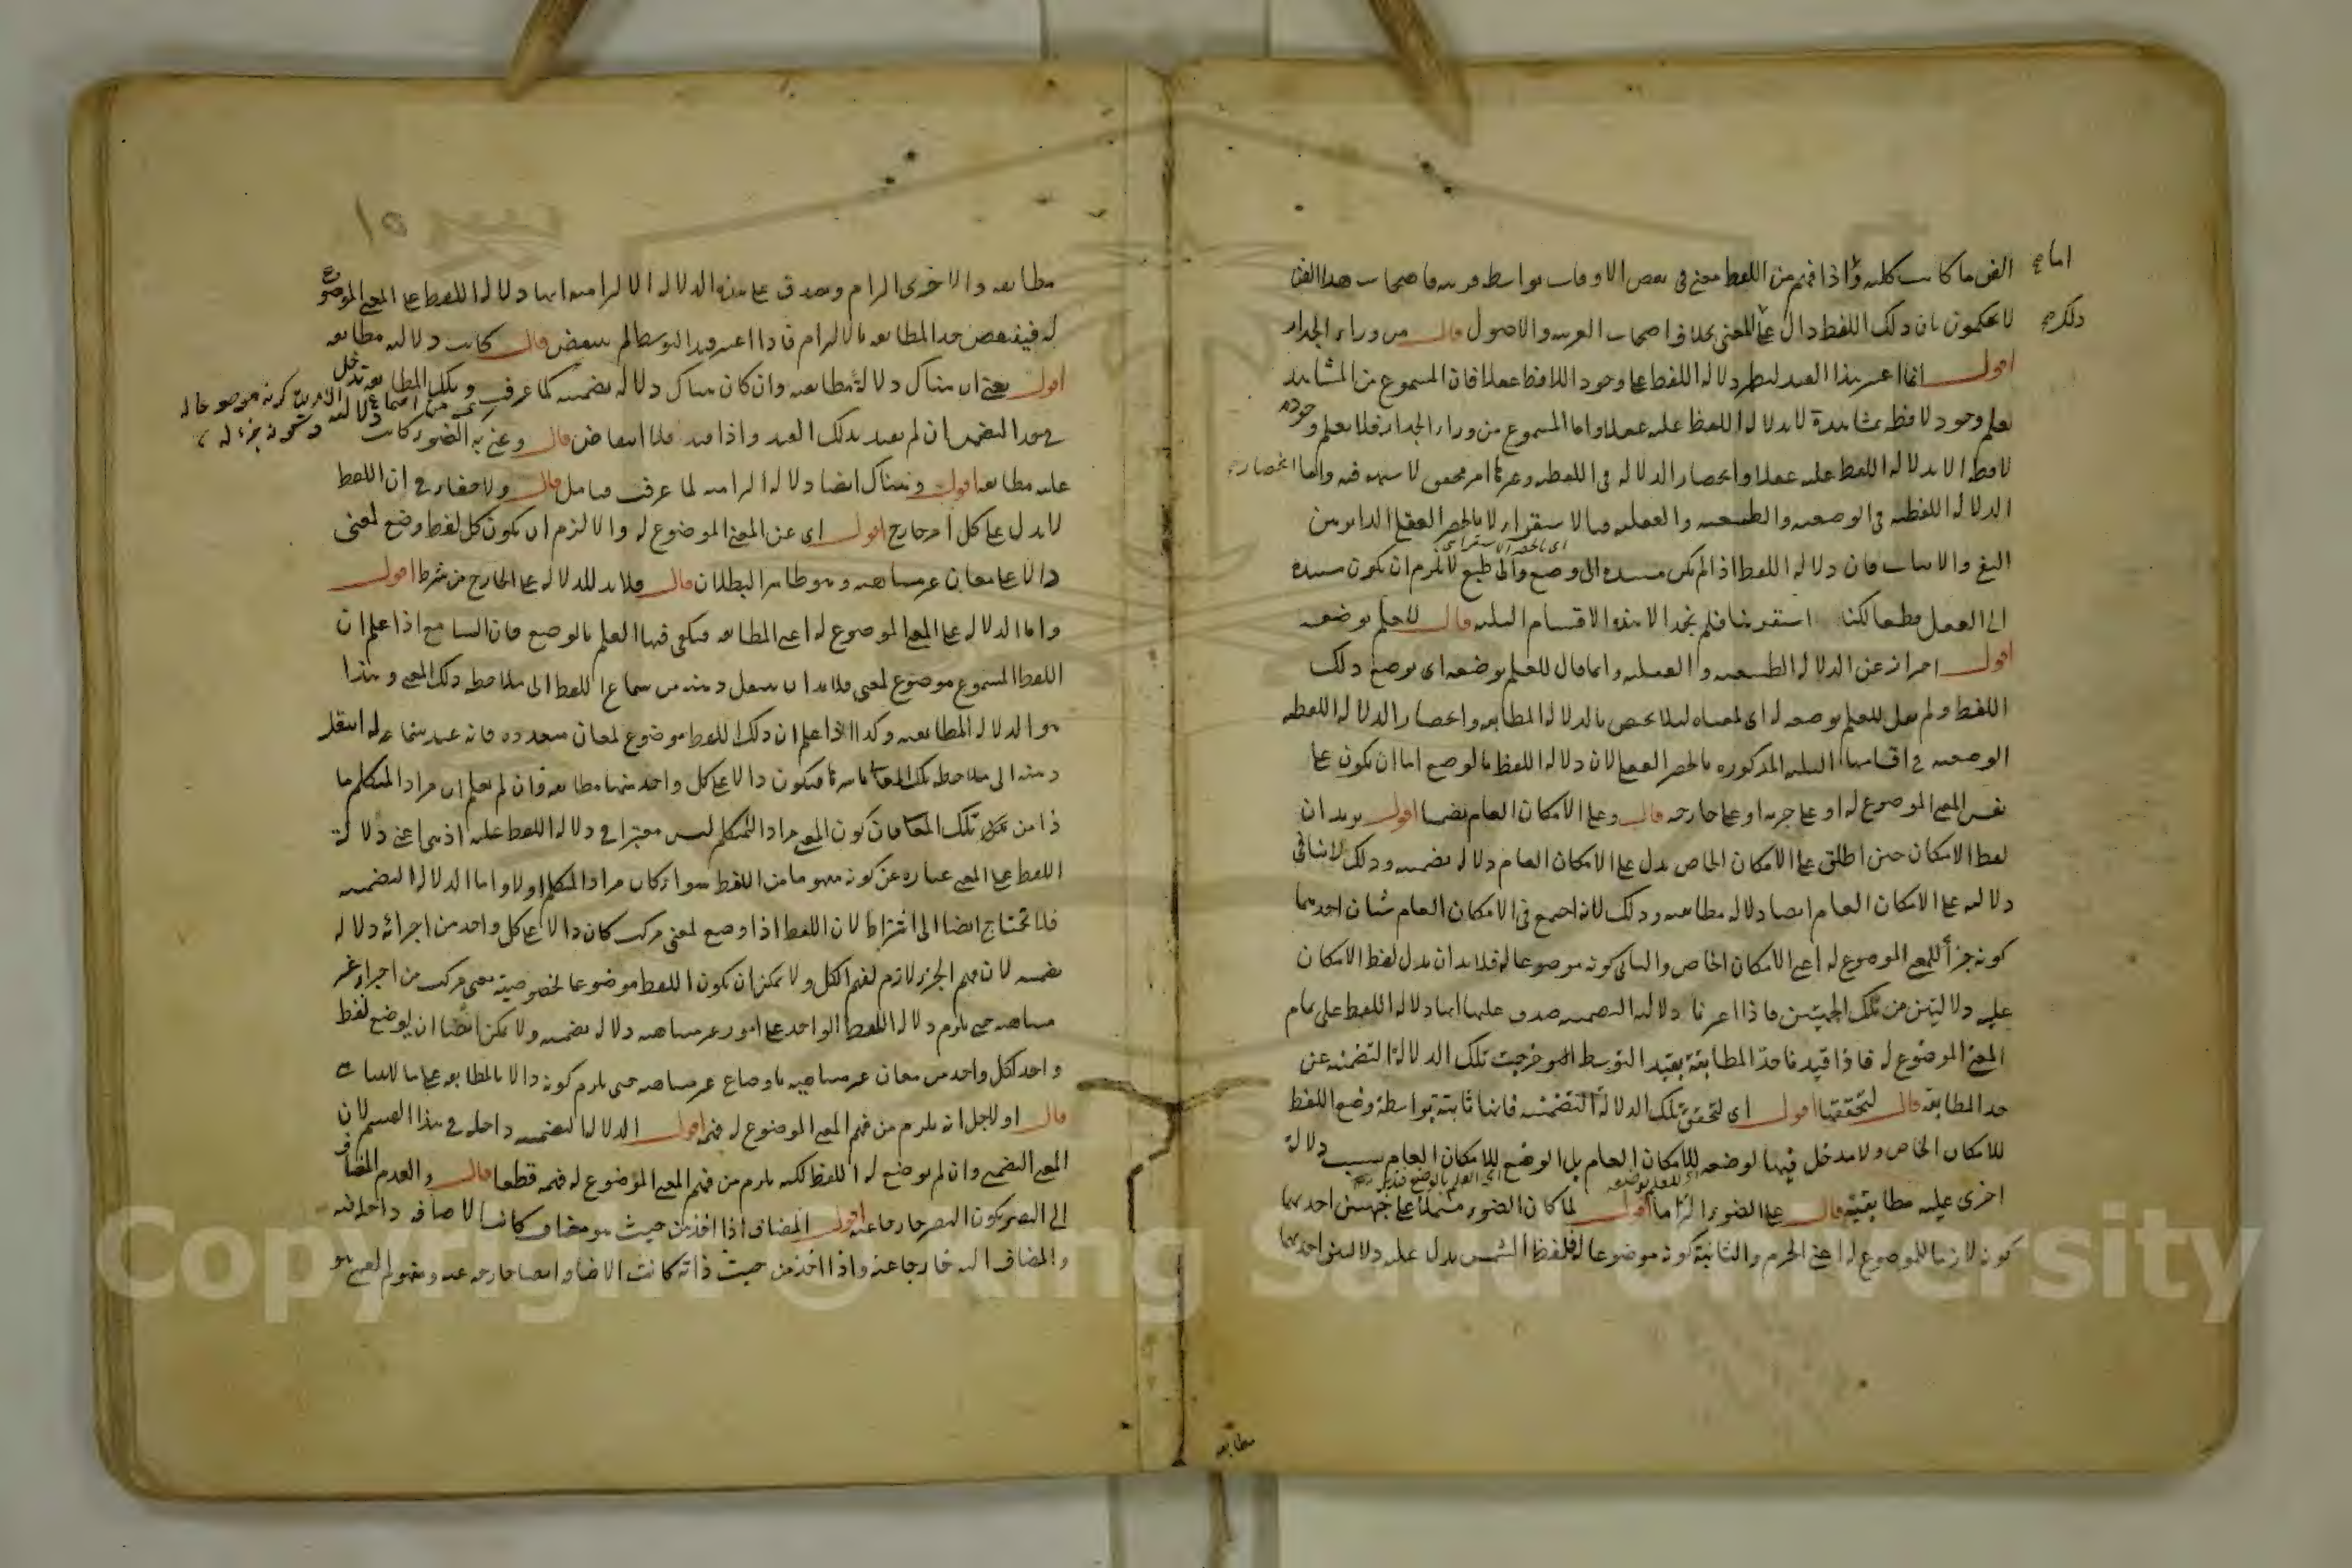 الفن ما كانت كلية واذا فهم من اللفظ معنى فى بعض الاوقات بواسطة قرينة فاصحاب هذا الفن
لا يحكمون بان ذلك اللفظ دال على المعنى بخلاف اصحاب العربية والاصول قال من وراء الجدار
اقول انما اعتبر هذا القيد ليظهر دلالة اللفظ على وجود اللافظ عقلا فان المسموع من المشاهد
يعلم وجود لافظه بمشاهدة لا بدلالة اللفظ عليه عقلا واما المسموع من وراء الجدار فلا يعلم وجود
لافظه الا بدلالة اللفظ عليه عقلا وانحصار الدلالة فى اللفظية وغيرها امر محقق لا شبهة فيه واما انحصار
الدلالة اللفظية فى الوضعية والطبيعية والعقلية فبالاستقراء لا بالحصر العقلى الدائر بين
النفى والاثبات فان دلالة اللفظ اذا لم يكن مستندة الى وضع والى طبع لا يلزم ان يكون مستندة
الى العقل قطعا لكنا استقرينا فلم نجد الا هذه الاقسام الثلثة قال للعلم بوضعه
اقول احتراز عن الدلالة الطبيعية والعقلية وانما قال للعلم بوضعه اى بوضع ذلك
اللفظ ولم يقل للعلم بوضعه له اى لمعناه لئلا يختص بالدلالة المطابقة وانحصار الدلالة اللفظية
الوضعية فى اقسامها الثلثة المذكورة بالحصر العقلى لان دلالة اللفظ بالوضع اما ان يكون على
نفس المعنى الموضوع له او على جزئه او على خارجه قال وعلى الامكان العام تضمنا اقول يريد ان
لفظ الامكان حين اطلق على الامكان الخاص يدل على الامكان العام دلالة تضمنية وذلك لا ينافى
دلالته على الامكان العام ايضا دلالة مطابقية وذلك لانه اجتمع فى الامكان العام شيئان احدهما
كونه جزأ للمعنى الموضوع له اعنى الامكان الخاص والثانى كونه موضوعا له فلا بد ان يدل لفظ الامكان
عليه دلالتين من تلك الجهتين فاذا اعتبرنا دلالته التضمنية صدق عليها انها دلالة اللفظ على تمام
المعنى الموضوع له فاذا قيدنا حد المطابقة بقيد التوسط خرجت تلك الدلالة التضمنية عن
حد المطابقة قال لتحققها اقول اى لتحقق تلك الدلالة التضمنية فانها ثابتة بواسطة وضع اللفظ
للامكان الخاص ولا مدخل فيها لوضعه للامكان العام بل الوضع للامكان العام سبب دلالة
اخرى عليه مطابقية قال على الضوء التزاما اقول لما كان الضوء مشتملا على جهتين احدهما
كونه لازما للموضوع له اعنى الجرم والثانية كونه موضوعا له فلفظ الشمس يدل عليه دلالتين احدهما
مطابقة
مطابقة والاخرى التزام ويصدق على هذه الدلالة الالتزامية انها دلالة اللفظ على المعنى الموضوع
له فينتقض حد المطابقة بالالتزام فاذا اعتبر قيد التوسط لم ينتقض قال كانت دلالته مطابقة
اقول يعنى ان هناك دلالة مطابقية وان كان هناك دلالة تضمنية كما عرفت وبتلك المطابقة تدخل
فى حد التضمن ان لم يقيد بذلك القيد واذا قيد فلا انتقاض قال وعنى به الضوء كانت
عليه مطابقة اقول وهناك ايضا دلالة التزامية لما عرفت فتأمل قال ولا خفاء فى ان اللفظ
لا يدل على كل امر خارج اقول اى عن المعنى الموضوع له والا لزم ان يكون كل لفظ وضع لمعنى
دالا على معان غير متناهية وهو ظاهر البطلان قال فلا بد للدلالة على الخارج من شرط اقول
واما الدلالة على المعنى الموضوع له اعنى المطابقة فيكفى فيها العلم بالوضع فان السامع اذا علم ان
اللفظ المسموع موضوع لمعنى فلا بد ان ينتقل ذهنه من سماع اللفظ الى ملاحظة ذلك المعنى وهذا
هو الدلالة المطابقية وكذا اذا علم ان ذلك اللفظ موضوع لمعان متعددة فانه عند سماعه له انتقل
ذهنه الى ملاحظة تلك المعانى باسرها فيكون دالا على كل واحد منها مطابقة وان لم يعلم ان مراد المتكلم ما
ذا من تلك المعانى فان كون المعنى مراد المتكلم ليس معتبرا فى دلالة اللفظ عليه اذ هى اعنى دلالة
اللفظ على المعنى عبارة عن كونه مفهوما من اللفظ سواء كان مراد المتكلم اولا واما الدلالة التضمنية
فلا تحتاج ايضا الى اشتراط لان اللفظ اذا وضع لمعنى مركب كان دالا على كل واحد من اجزائه دلالة
تضمنية لان فهم الجزء لازم لفهم الكل ولا يمكن ان يكون اللفظ موضوعا لخصوصية معنى مركب من اجزاء غير
متناهية حتى يلزم دلالة اللفظ الواحد على امور غير متناهية دلالة تضمنية ولا يمكن ايضا ان يوضع لفظ
واحد لكل واحد من معان غير متناهية باوضاع غير متناهية حتى يلزم كونه دالا بالمطابقة على ما لا يتناهى
قال او لاجل انه يلزم من فهم المعنى الموضوع له فهمه اقول الدلالة التضمنية داخلة فى هذا القسم لان
المعنى التضمنى وان لم يوضع له اللفظ لكنه يلزم من فهم المعنى الموضوع له فهمه قطعا قال والعدم المضاف
الى البصر يكون البصر خارجا عنه اقول المضاف اذا اخذ من حيث هو مضاف كانت الاضافة داخلة فيه
والمضاف اليه خارجا عنه واذا اخذ من حيث ذاته كانت الاضافة ايضا خارجة عنه ومفهوم العمى هو